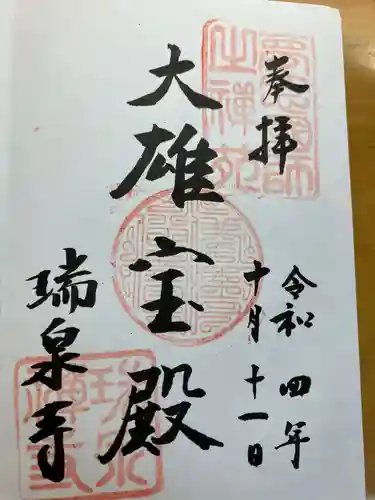 奉拝
令和四年
十月十一日
大雄宝殿
瑞泉寺